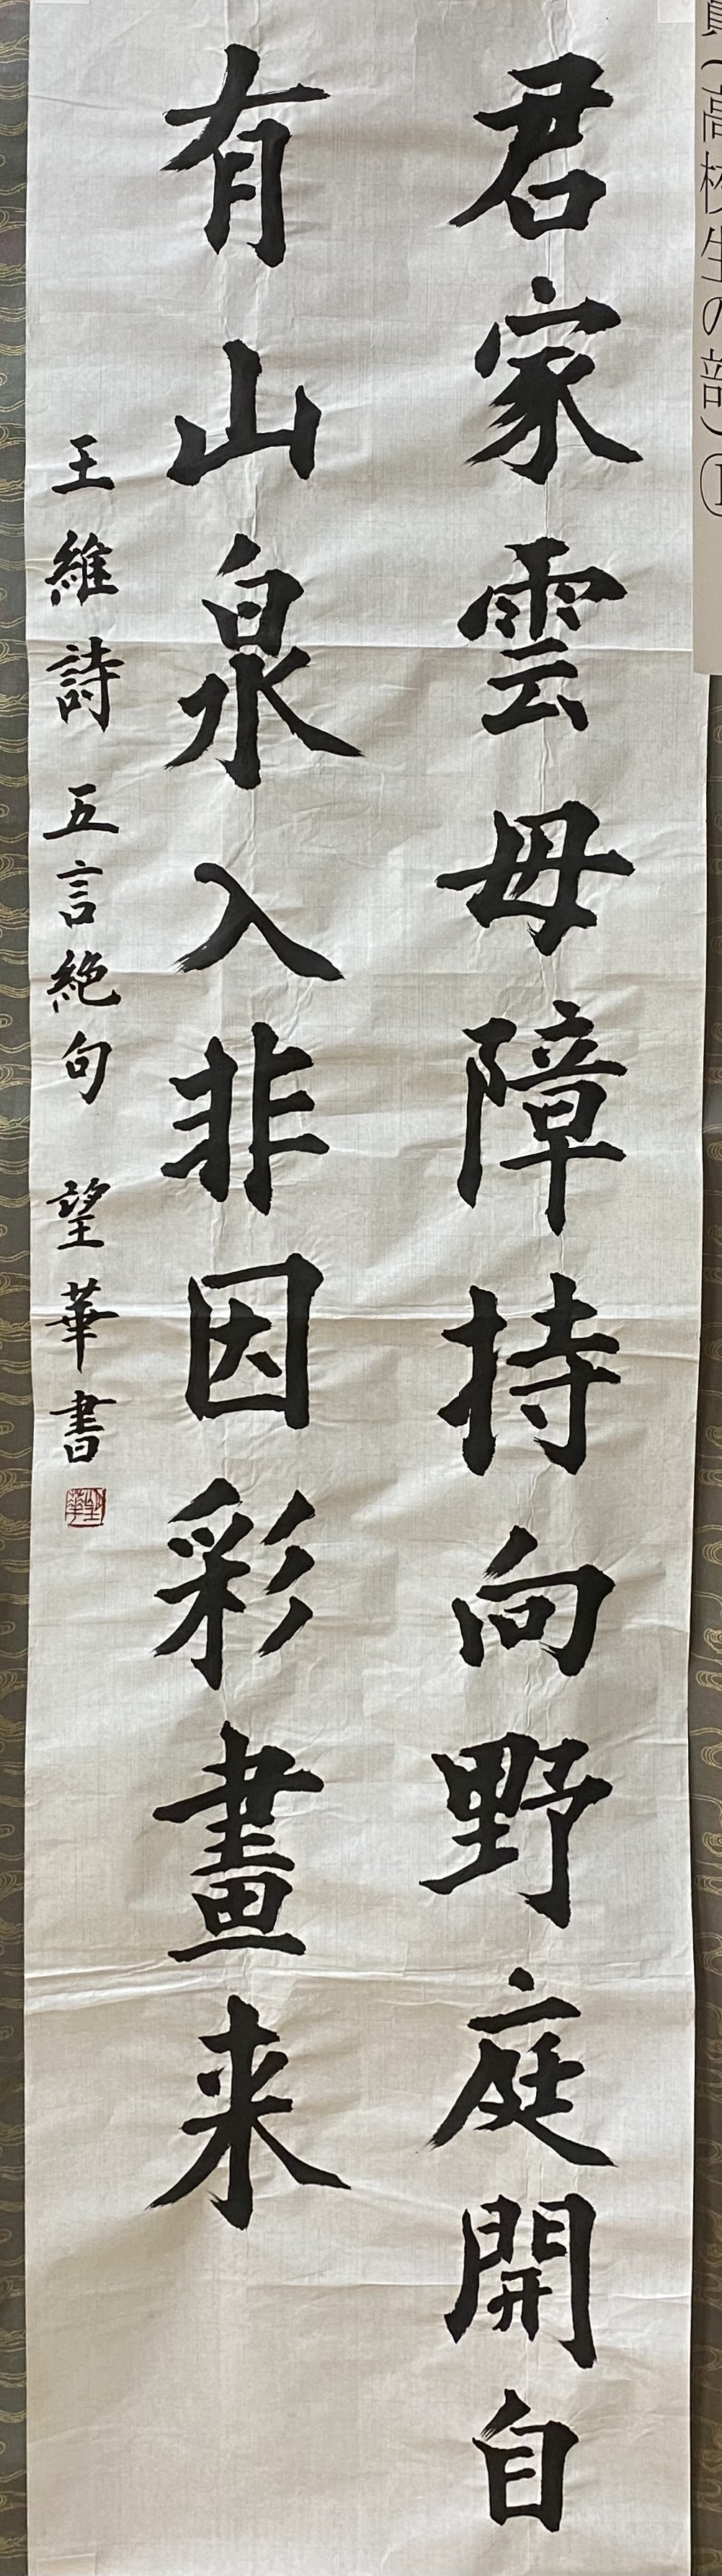 君家雲母障持向野庭開自
有山泉入非因彩畫来
王維詩 五言絶句 望華書
望華
(高校生の部)①